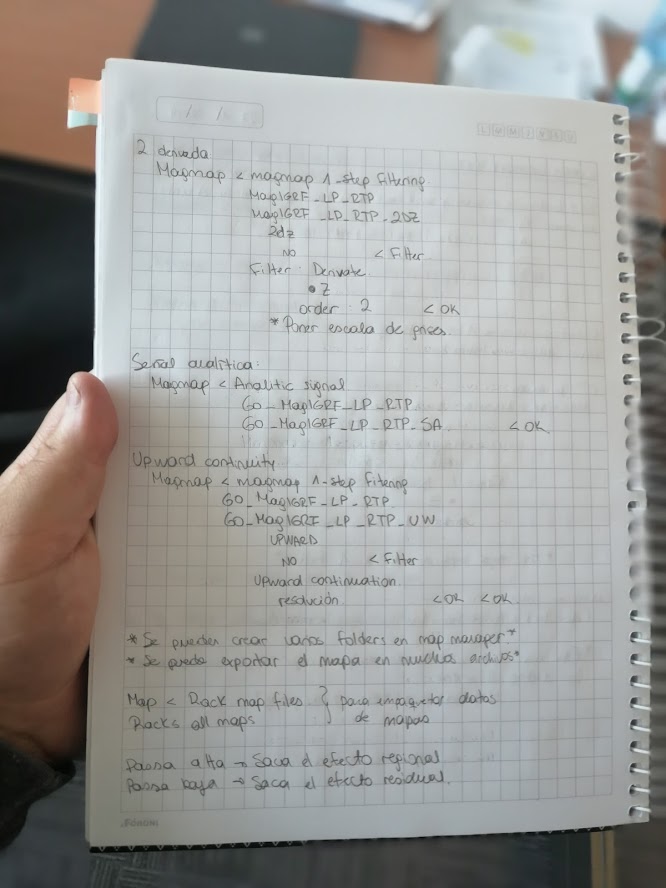 / /
LUMINEU
2 derivada
Magmap < magmap 1-step filtering
MagIGRF_LP_RTP
MagIGRF_LP_RTP_2DZ
2dz
NO < Filter
Filter: Derivate
• Z
order: 2 < OK
* Poner escala de grises.
Señal analítica:
Magmap < Analitic signal
GO_MagIGRF_LP_RTP
GO_MagIGRF_LP_RTP_SA < OK
Upward continuity
Magmap < magmap 1-step Filtering
GO_MagIGRF_LP_RTP.
GO_MagIGRF_LP_RTP_UW
UPWARD
NO < Filter
Upward continuation.
resolución. < OK < OK.
* Se pueden crear varios folders en map manager *
* Se puede exportar el mapa en muchos archivos *
Map < Pack map files } para empaquetar datos
Packs all maps } de mapas
Passa alta → Saca el efecto regional
Passa baja → Saca el efecto residual.